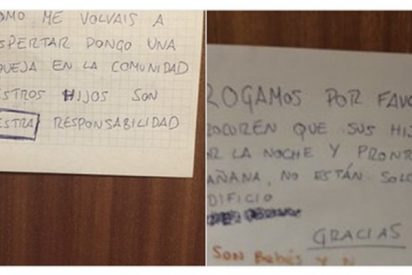 OMO ME VOLVAIS A
SPERTAR PONGO UNA
UEJA EN LA COMUNIDAD
STROS HIJOS SON
ESTRA RESPONSABILIDAD
ROGAMOS POR FAVO
ROCUREN QUE SUS HI
OR LA NOCHE Y PRONT
AÑANA, NO ESTÁN SOLO
DIFICIO
GRACIAS
SON Bebés y N